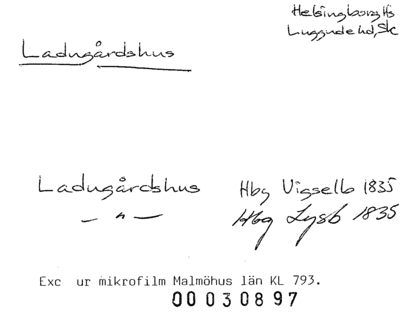 Helsingborg Hs
Luggude hd, Sk
Ladugårdshus
Ladugårdshus Hbg Vigsellb 1835
— " — Hbg Lysb 1835
Exc ur mikrofilm Malmöhus län KL 793.
00030897